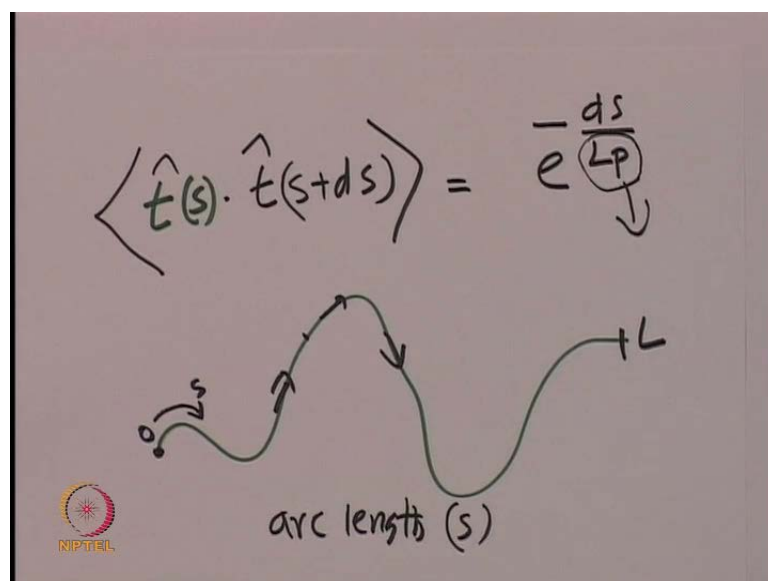 ⟨t̂(s) · t̂(s+ds)⟩ = e^(-ds/Lp)
s
0
L
arc length (s)
NPTEL